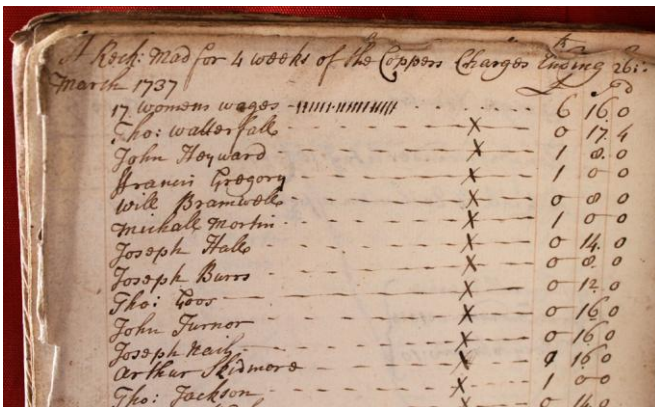 A Reck: Mad for 4 weeks of the Coppers Charges Ending 26th:
March 1737
£ s d
17 womens wages 6 16 0
Tho: Watterfall x 0 17 4
John Heyward x 1 8 0
ffrancis Gregory x 1 0 0
Will Bramwell x 0 8 0
Michall Mortin x 1 0 0
Joseph Hall x 0 14 0
Joseph Burrs x 0 8 0
Tho: Goos x 0 12 0
John Turnor x 0 16 0
Joseph x 0 16 0
Arthur Skidmore x 16 0
Tho: Jackson x 1 0 0
x 0 14 0